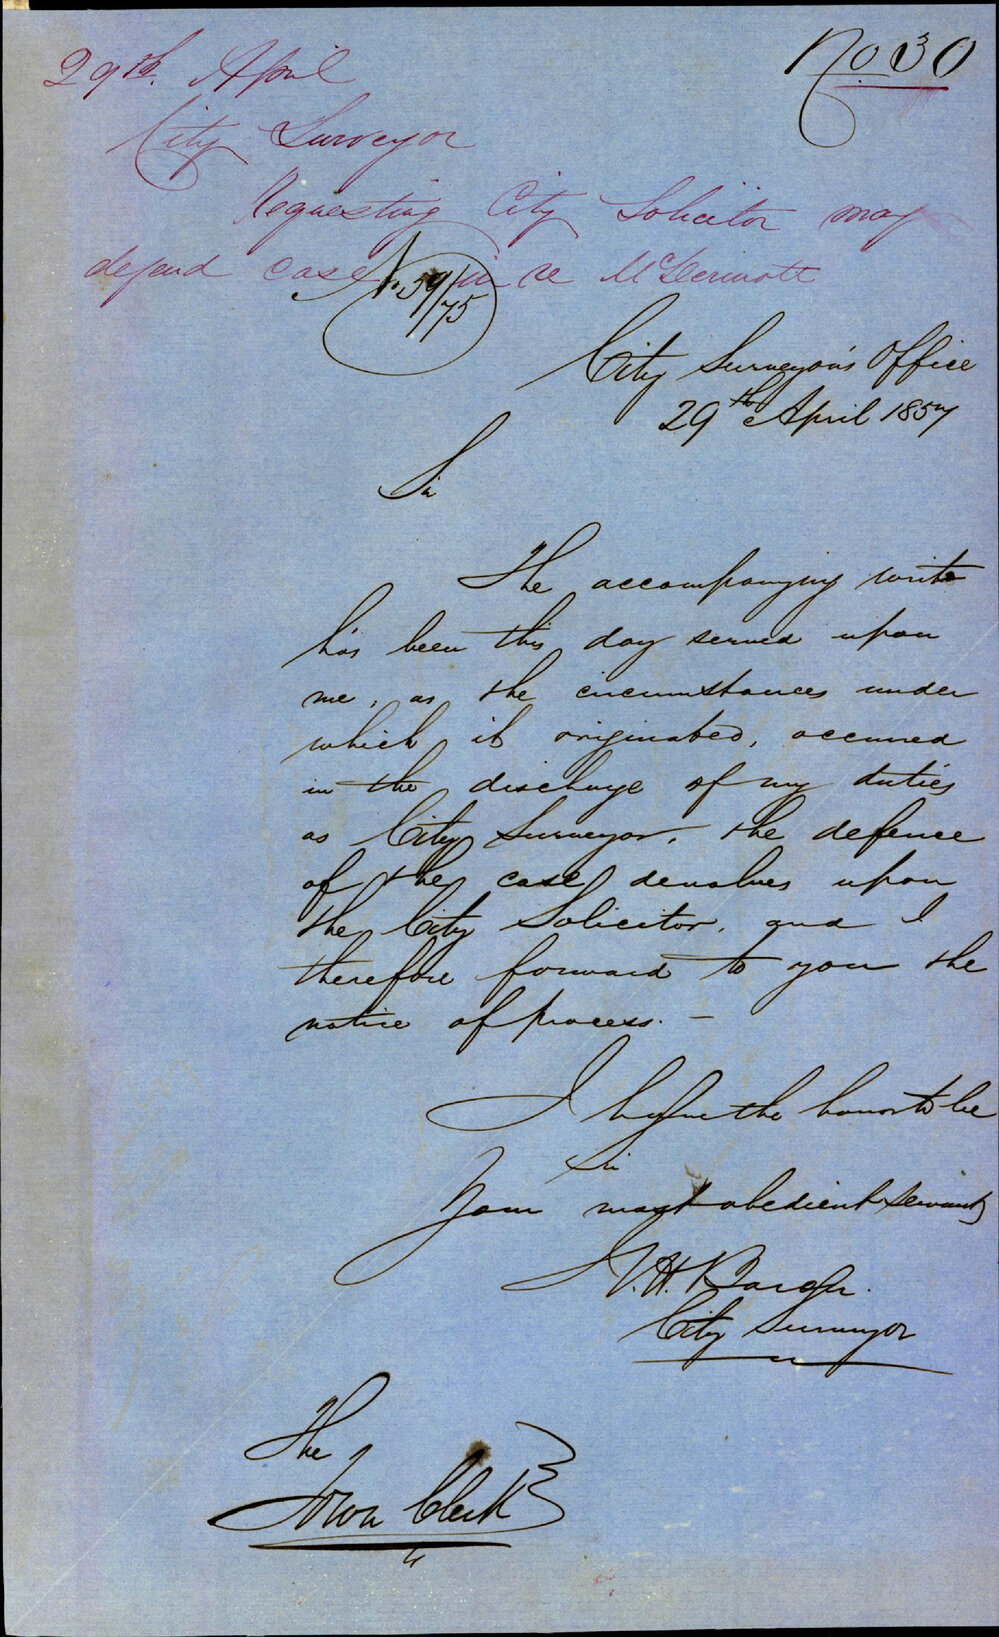 No 30
29th. April
City Surveyor
Requesting City Solicitor may
defend case in re McDermott
No. 59/75
City Surveyor's Office
29th April 1857
Sir
The accompanying writ
has been this day served upon
me, as the circumstances under
which it originated, occurred
in the discharge of my duties
as City Surveyor, the defence
of the case devolves upon
the City Solicitor, and I
therefore forward to you the
notice of process. —
I have the honor to be
Sir
Your most obedient servant
City Surveyor
The
Town Clerk